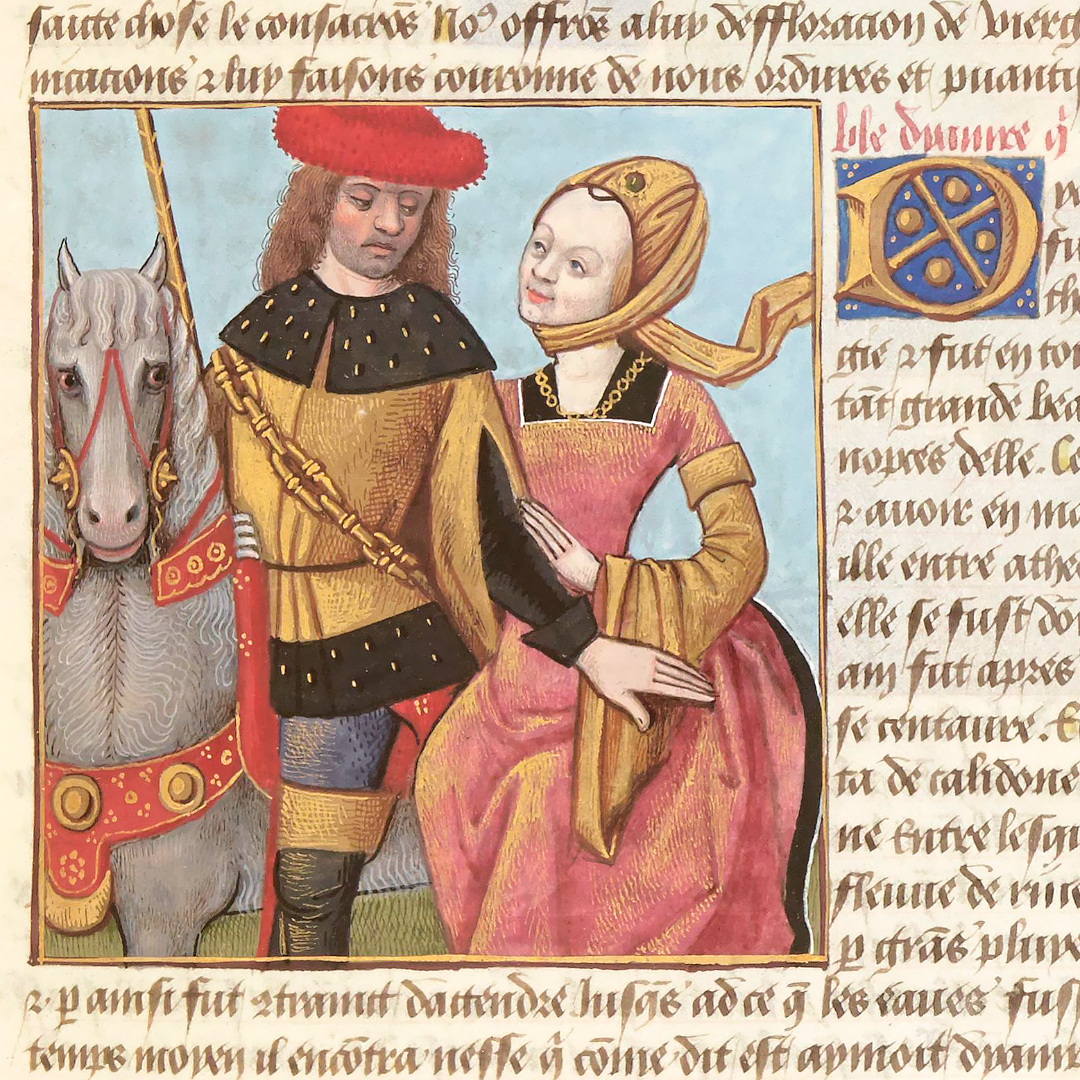 saīte chose le consacrōs No⁹ offrōs a luy deffloracion de vierg
nicacions ⁊ luy faisons couronne de nous ordures et puanti
ble dyanire q̄
D
fu
the
gie ⁊ fut en
tāt grande bea
nopces delle. Ce
⁊ auoir en ma
ille entre athe
elle se fust dō
am fut apres
se centaure. E
ta de calidone
ne Entre lesqu
fleuue de
p grās pluye
⁊ p ainsi fut ⁊traint dattendre Jusq̄s ad ce q̄ les eaues fus
temps moyen il encōtra nesse q̄ cōme dit est aymoit dyanir